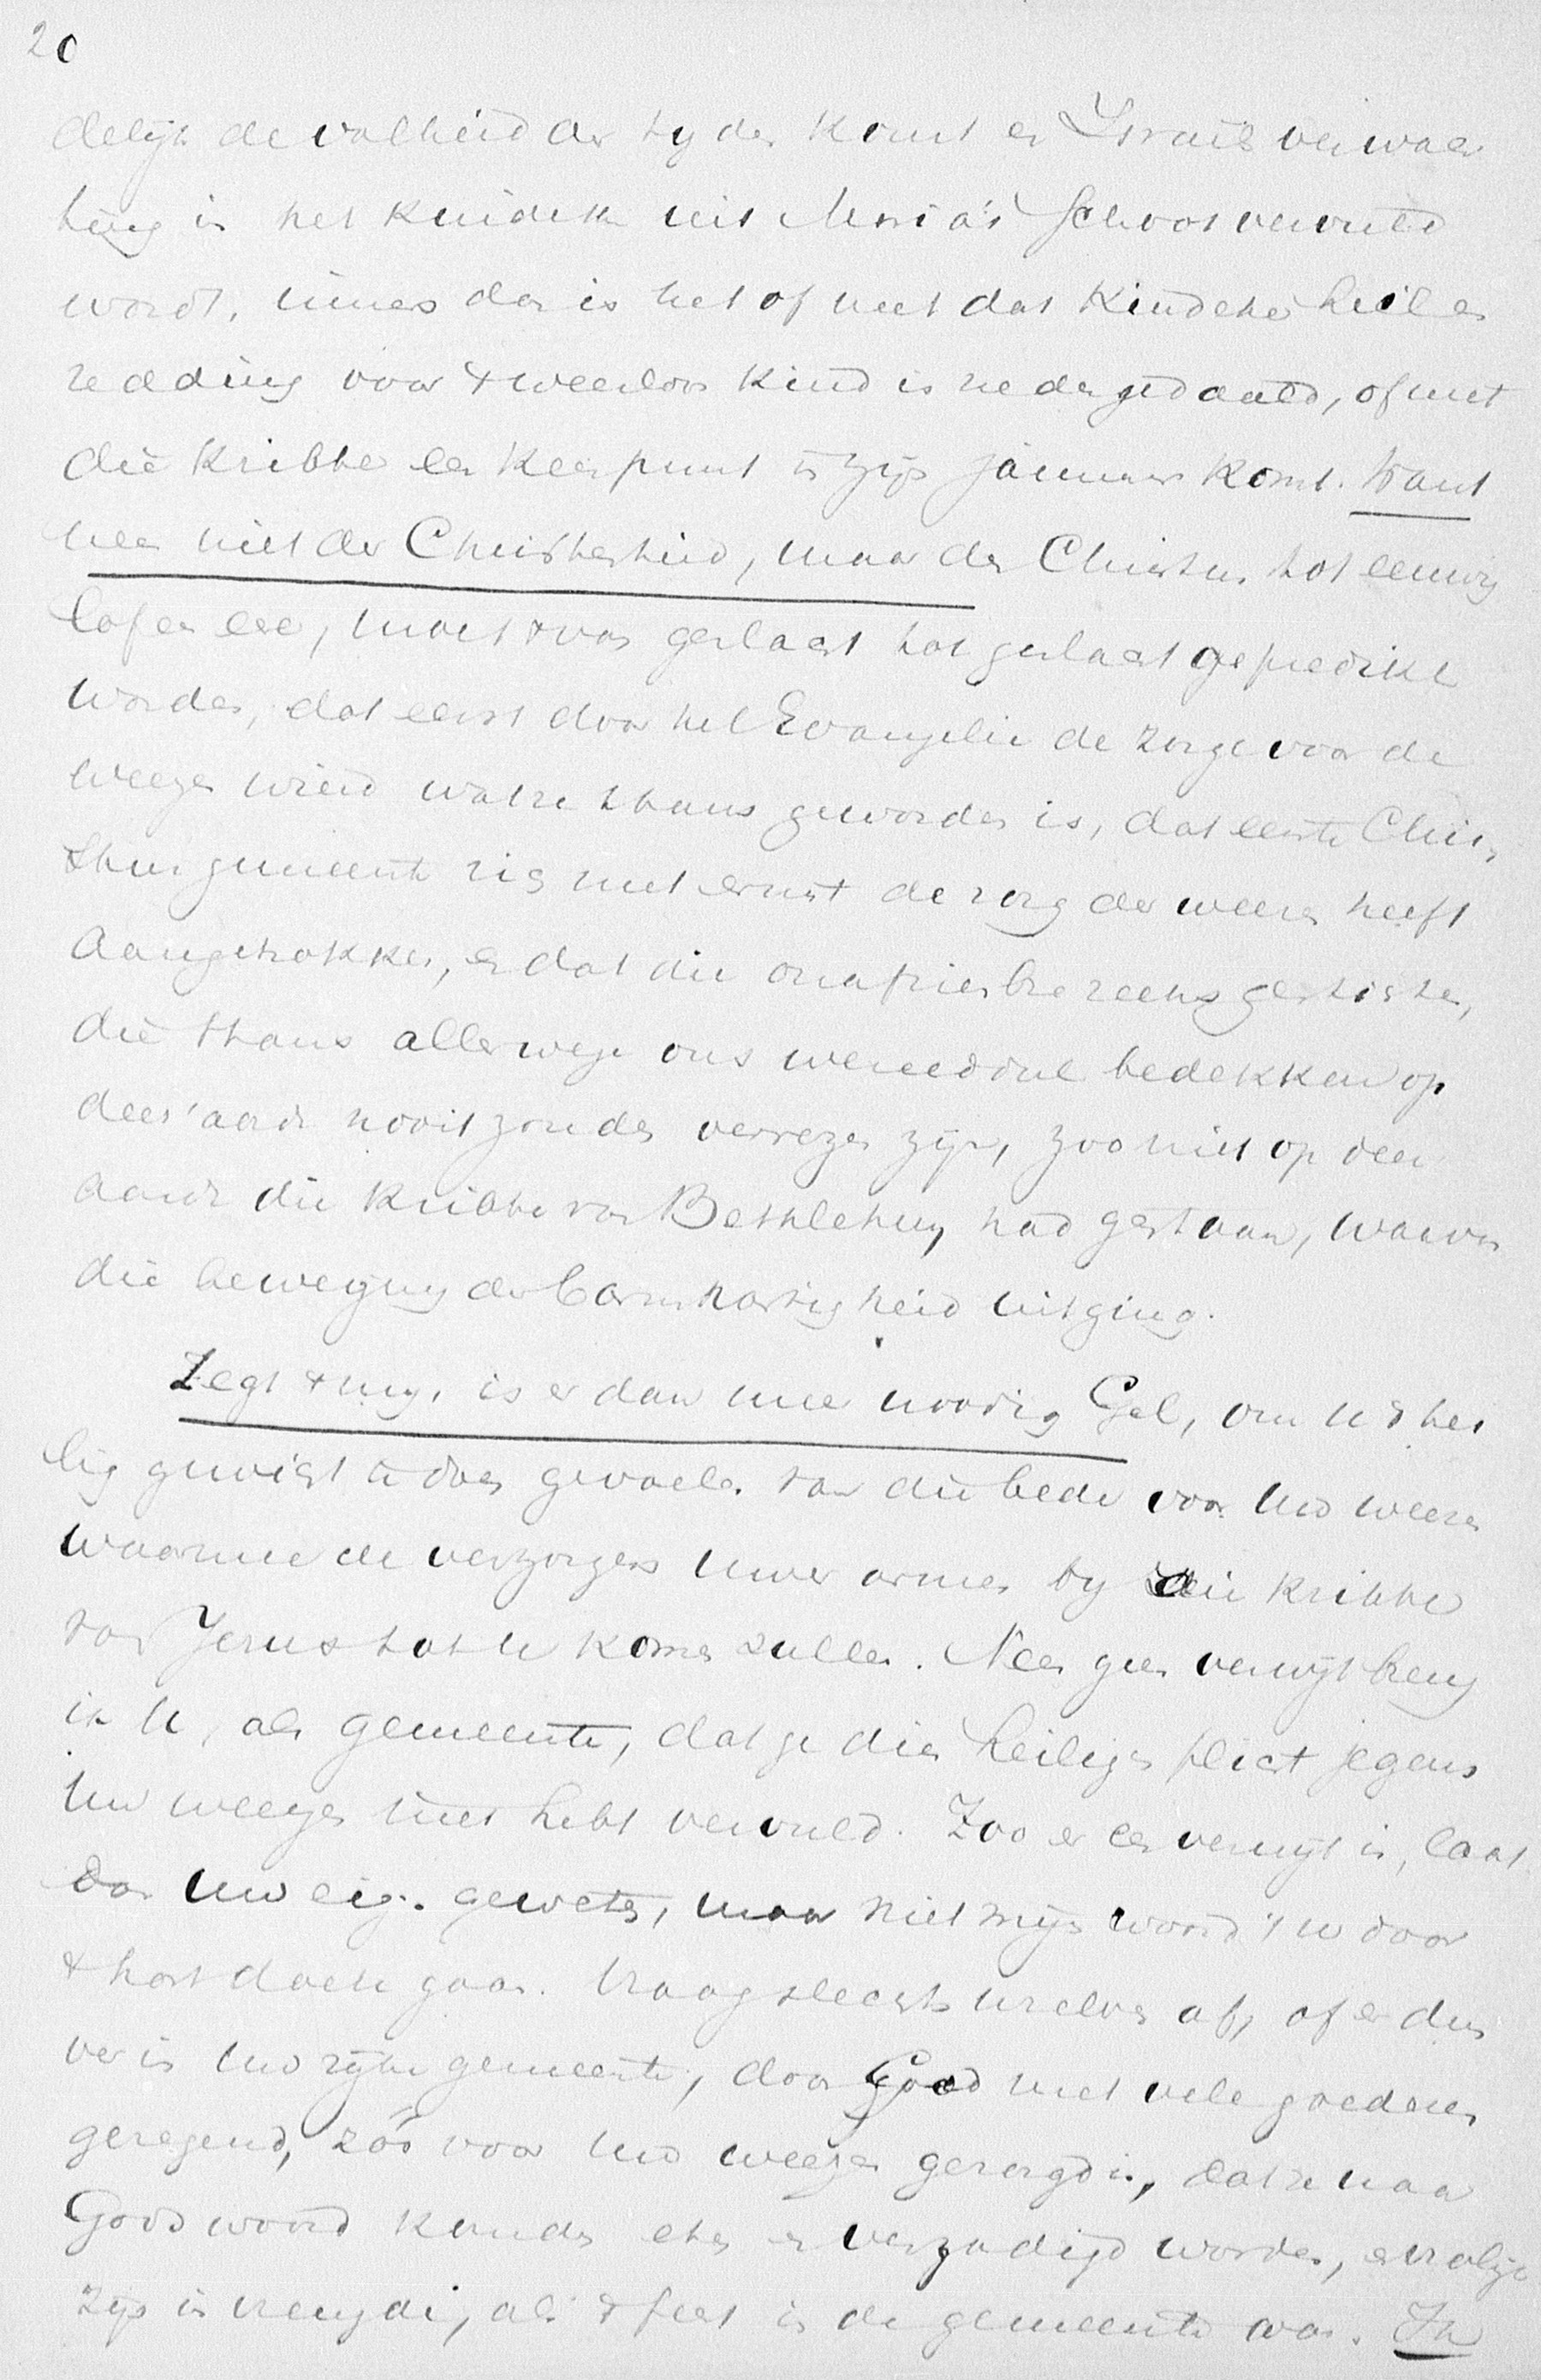 20
delijk de volheid der tyden komt en Israëls verwach
ting in het kindeke uit Maria's schoot vervuld
wordt, immer dan is het of met dat kindeke heil en
redding voor 't weerloos kind is nedergedaald, of met
die kribbe een keerpunt in zijn jammer komt. Want
neen niet der Christenheid, maar den Christus tot eeuwig
lof en eer, moet 't van geslacht tot geslacht gepredikt
worden, dat eerst door het Evangelie de zorge voor de
weezen wierd wat ze thans geworden is, dat eerst Chris
thus gemeente zich met ernst de zorg der weezen heeft
aangetrokken, en dat die onafzienbre reeks gestichten,
die thans allerwege ons werelddeel bedekken op
dees' aarde nooit zouden verrezen zijn, zoo niet op deez
aarde die kribbe van Bethlehem had gestaan, waarvan
die beweging der barmhartigheid uitging.
Zegt 't mij, is er dan meer noodig Gel, om u 't hei
lig gewicht te doen gevoelen van die bede voor uw weezen
waarmee de verzorgers uwer armen by die kribbe
van Jezus tot u komen zullen. Neen geen verwijt breng
ik u, als gemeente, dat ge dien heiligen plicht jegens
uw weezen niet hebt vervuld. Zoo er een verwijt is, laat
dan uw eigen geweten, maar niet mijn woord 't u door
't hart doen gaan. Vraag slechts uzelven af, of er dus
ver in uw rijke gemeente, door God met vele goederen
gezegend, zóó voor uw weezen gezorgd is, dat ze naar
Gods woord konden eten en verzadigd worden, en vrolijk
zijn in vreugde, als 't feest in de gemeente was. Ik